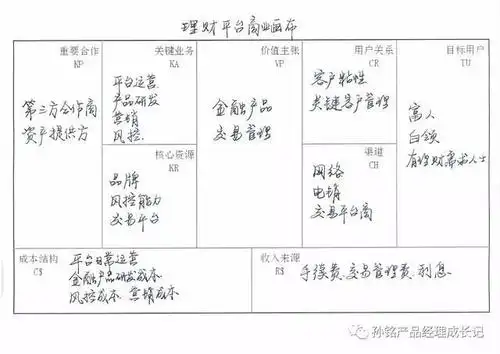 理财平台商业画布
重要合作
KP
第三方合作商
资产提供方
关键业务
KA
平台运营
产品研发
营销
风控.
核心资源
KR
品牌
风控能力
交易平台
价值主张
VP
金融产品
交易管理
用户关系
CR
客户粘性
关键客户管理
渠道
CH
网络
电销
交易平台商
目标用户
TU
富人
白领
有理财需求人士
成本结构
C$
平台日常运营
金融产品研发成本
风控成本 营销成本
收入来源
R$
手续费、交易管理费、利息
孙铭产品经理成长记